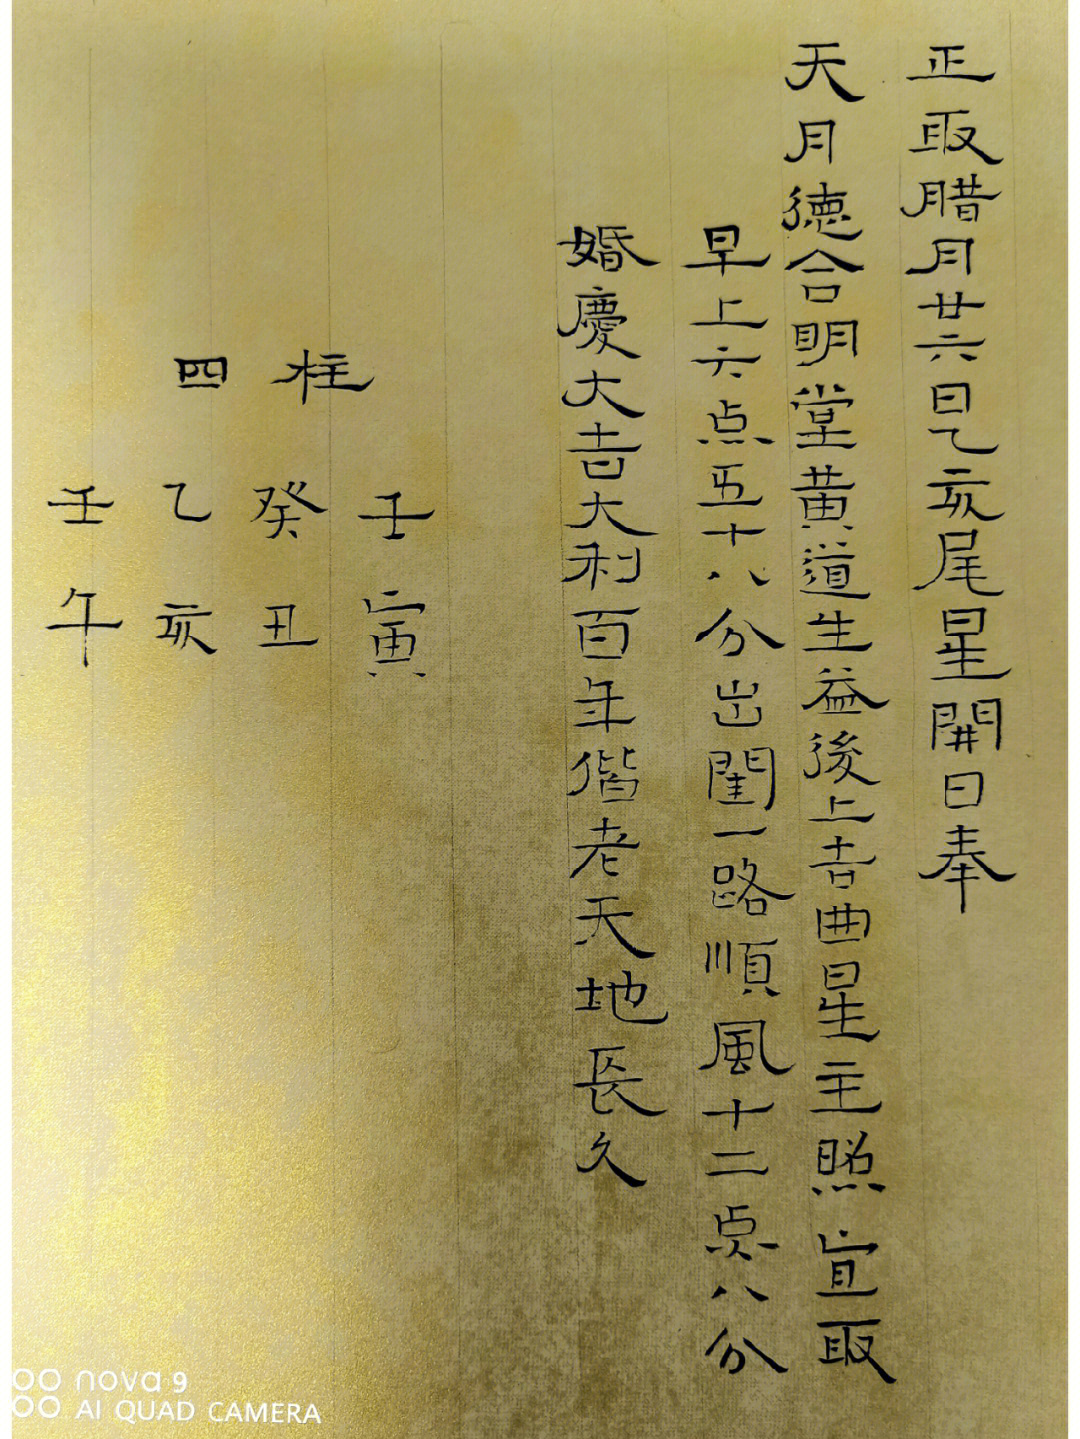 正取腊月廿六日乙亥尾星開日奉
天月德合明堂黄道生益後上吉曲星主照宜取
早上六点五十八分出閨一路順風十二点八分
婚慶大吉大利百年偕老天地長久
四柱
壬寅
癸丑
乙亥
壬午
nova 9
AI QUAD CAMERA